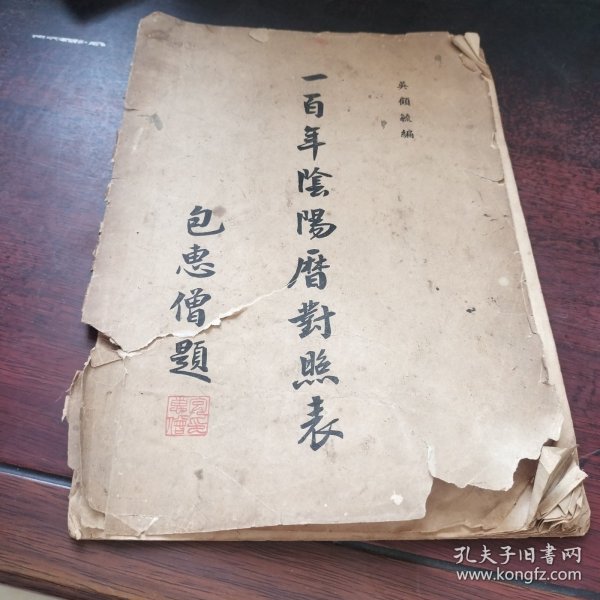 吳顧毓編
一百年陰陽曆對照表
包惠僧題
孔夫子旧书网
www.kongfz.com